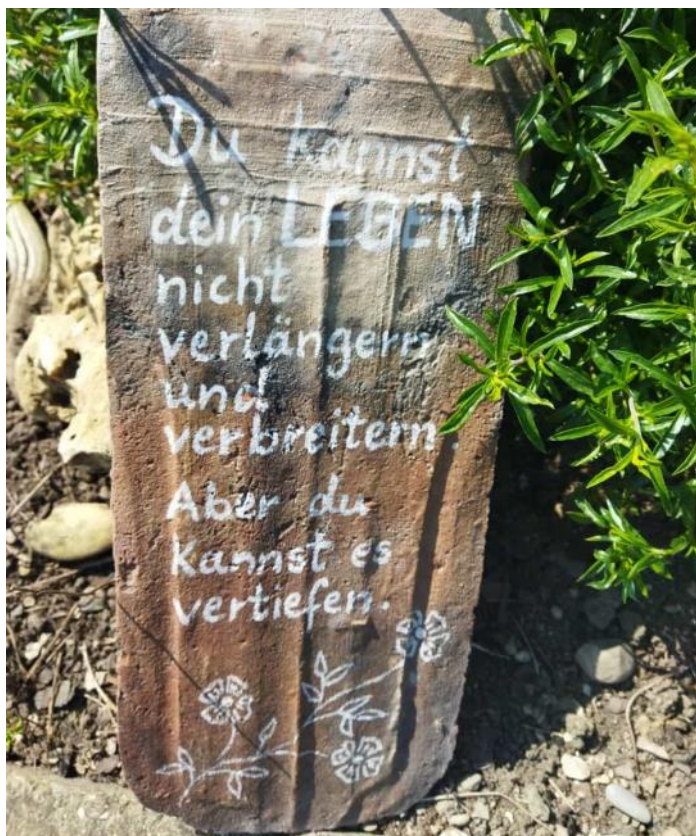 Du kannst
dein LEBEN
nicht
verlängern
und
verbreitern.
Aber du
kannst es
vertiefen.